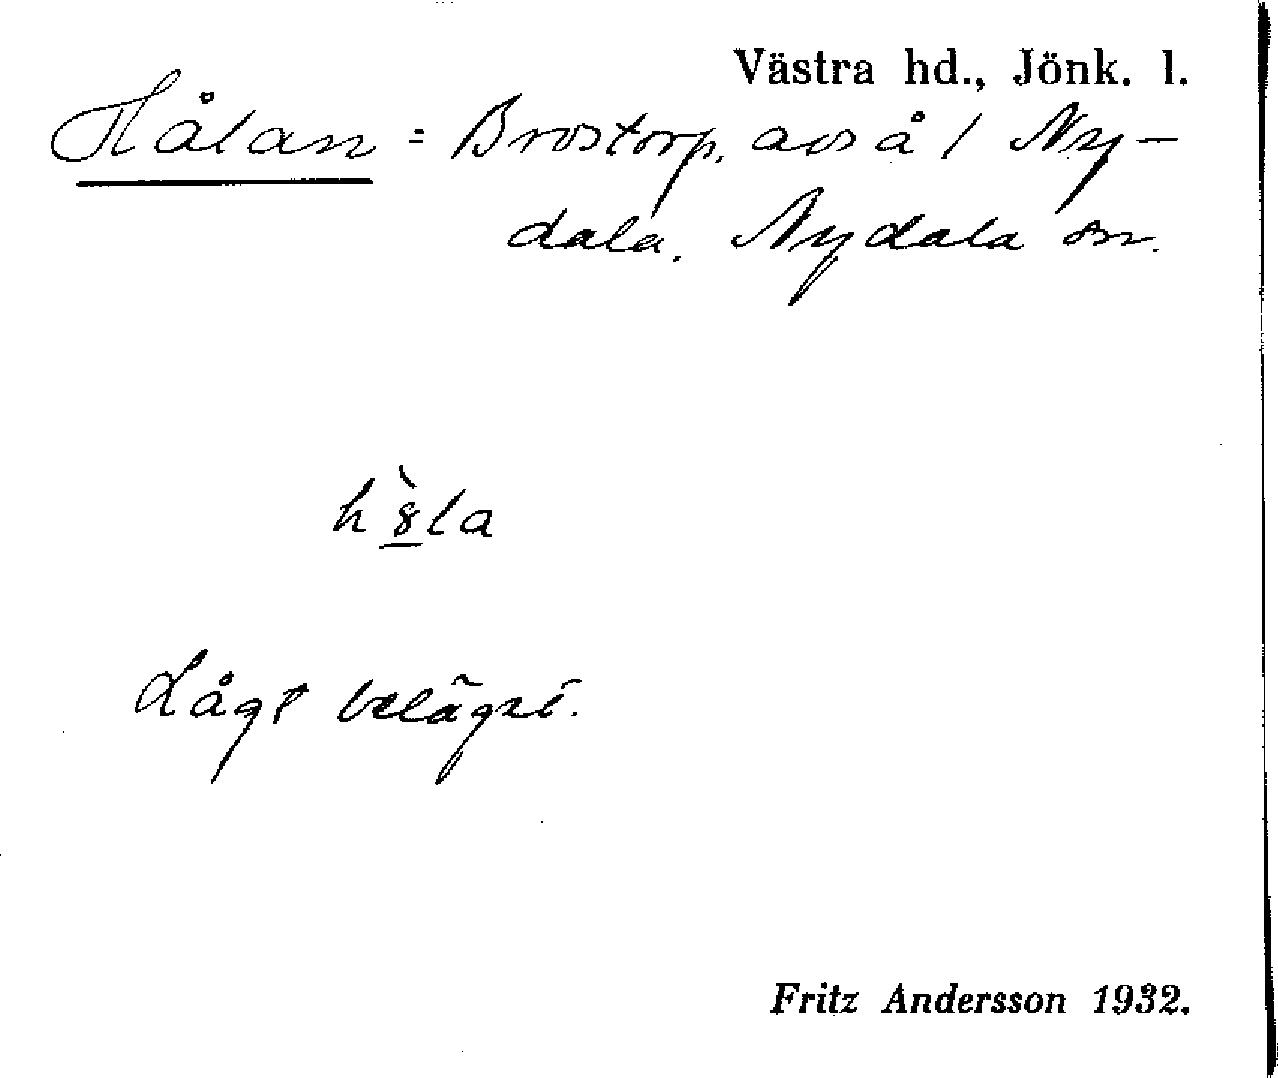 Västra hd., Jönk. l.
Hålan = Brostorp, avs å / Ny-
dala. Nydala sn.
Lågt beläget.
Fritz Andersson 1932.